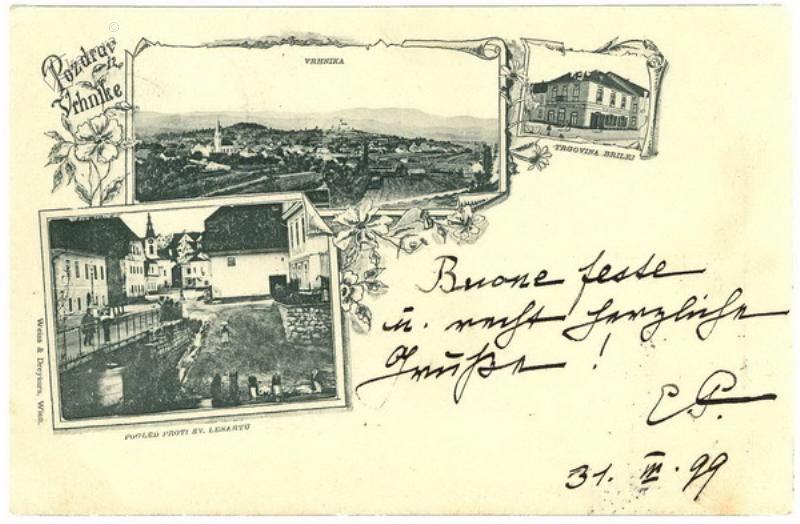 Pozdrav
iz
Vrhnike
VRHNIKA
TRGOVINA BRILEJ
POGLED PROTI SV. LENARTU
Weiss & Dreykurs, Wien.
Buone feste
u. recht herzliche
Grüße!
E P.
31. III. 99